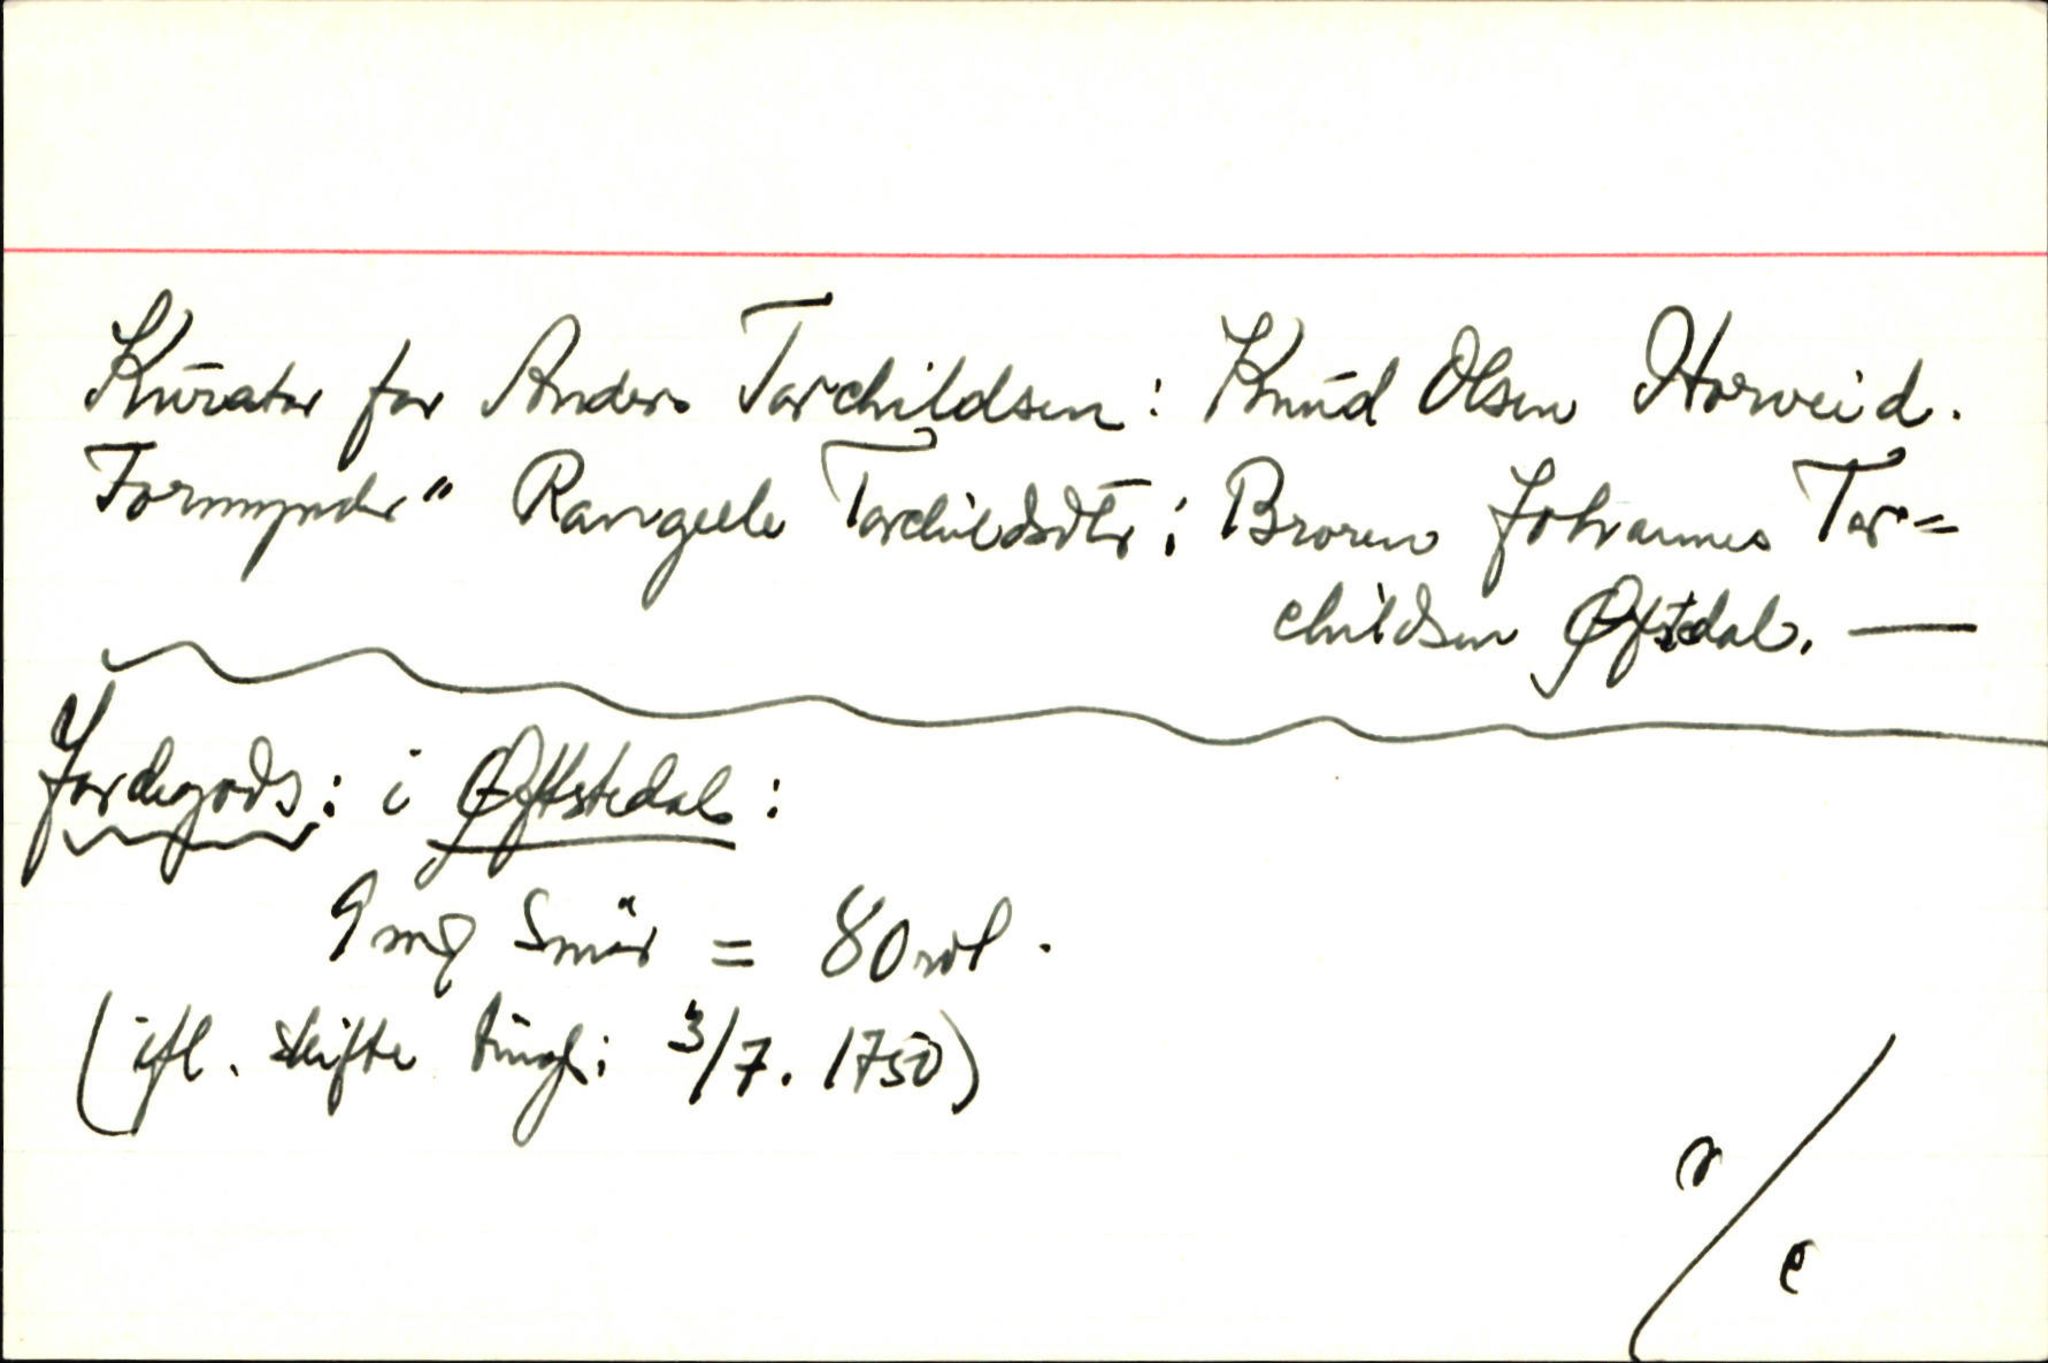 Kurator for Anders Torchildsen: Knud Olsen Horveid.
Formynder " Rangele Torchildsdtr: Broren Johannes Tor=
childsen Øftstdal. —
Jordegods: i Øftstedal:
9 mg Smör = 80 rdl.
(ifl. skifte tingl: 3/7. 1750)
r/e